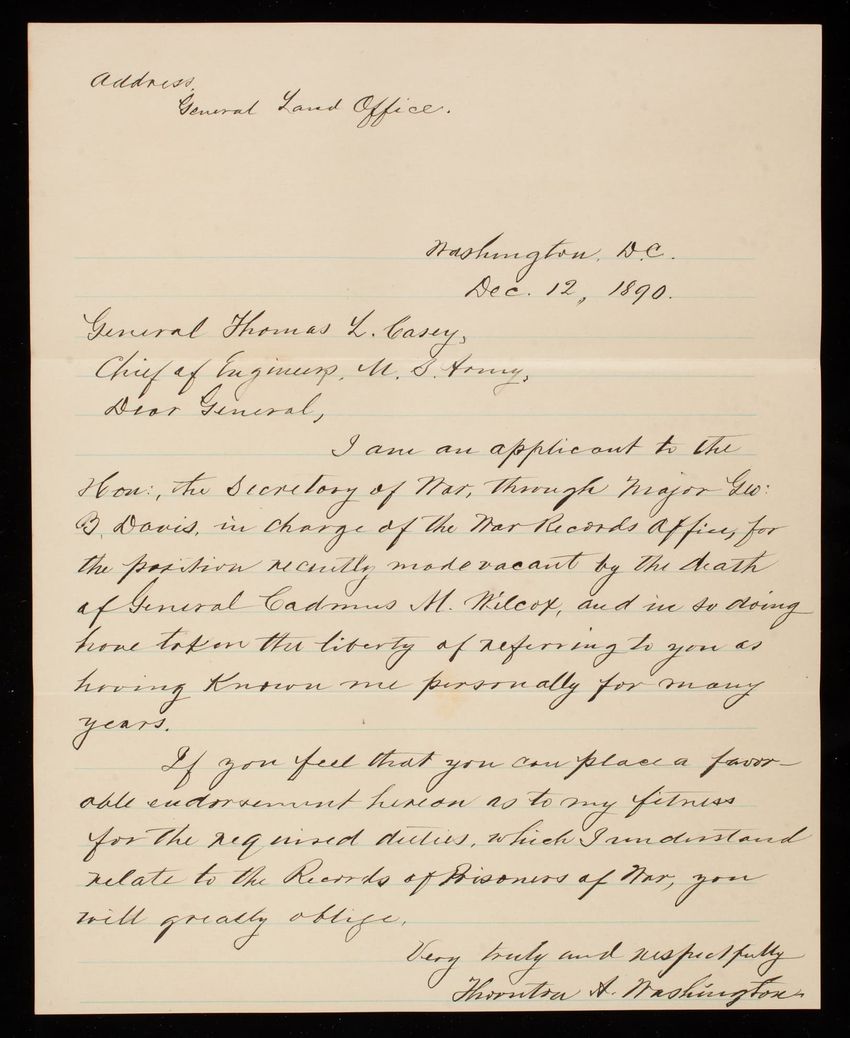 Address.
General Land Office.
Washington, D.C.
Dec. 12, 1890.
General Thomas L. Casey,
Chief of Engineers, U. S. Army,
Dear General,
I am an applicant to the
Hon:, the Secretary of War, through Major Geo:
B. Davis, in charge of the War Records Office, for
the position recently made vacant by the death
of General Cadmus M. Wilcox, and in so doing
have taken the liberty of referring to you as
having known me personally for many
years.
If you feel that you can place a favor-
able endorsement hereon as to my fitness
for the required duties, which I understand
relate to the Records of Prisoners of War, you
will greatly oblige,
Very truly and respectfully
Thornton A. Washington